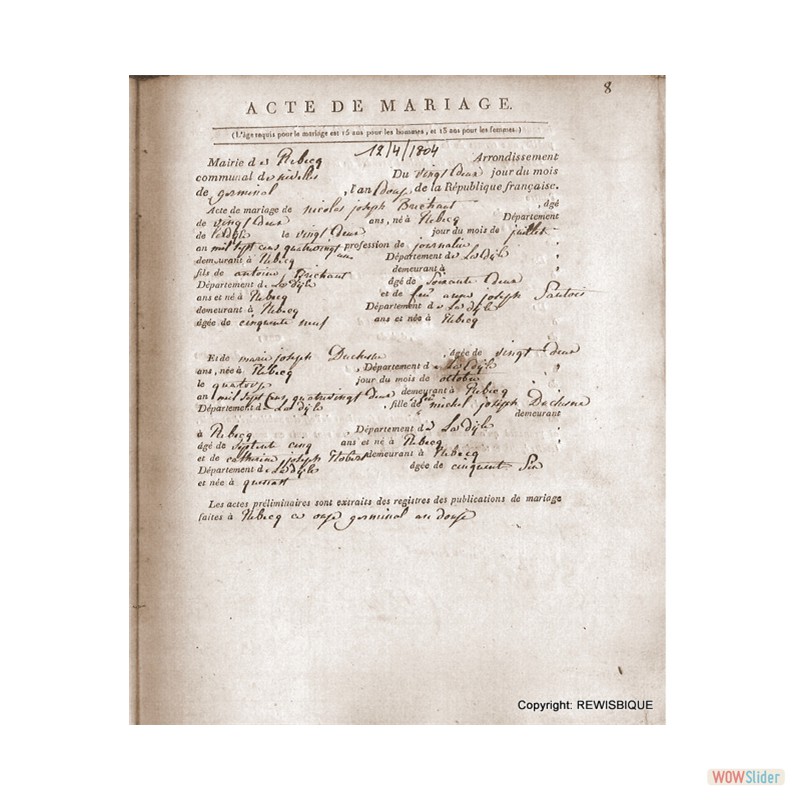 8
ACTE DE MARIAGE.
(L'âge requis pour le mariage est 15 ans pour les hommes, et 13 ans pour les femmes.)
12/4/1804
Mairie de Rebecq Arrondissement
communal de nivelles Du vingt deux jour du mois
de germinal, l'an douze de la République française.
Acte de mariage de nicolas joseph Brichant, âgé
de vingt deux ans, né à Rebecq Département
de la dÿle le vingt deux jour du mois de juillet
an mil sept cens quatrevingt un profession de journalier
demeurant à Rebecq Département de La Dÿle
fils de antoine Brichant demeurant à
Département de La Dÿle âgé de soixante deux
ans et né à Rebecq et de feu anne joseph
demeurant à Rebecq Département de La dÿle
âgée de cinquante neuf ans et née à Rebecq
Et de marie joseph Duchesne, âgée de vingt deux
ans, née à Rebecq, Département de La dÿle
le quatorze jour du mois de octobre
an mil sept cens quatrevingt deux demeurant à Rebecq
Département de La dÿle, fille de michel joseph Duchesne
demeurant
à Rebecq, Département de La Dÿle
âgé de septente cinq ans et né à Rebecq
et de catherine joseph demeurant à Rebecq
Département de La Dÿle âgée de cinquante Six
et née à quenast
Les actes préliminaires sont extraits des registres des publications de mariage
faites à Rebecq ce onze germinal an douze
Copyright: REWISBIQUE
WOWSlider